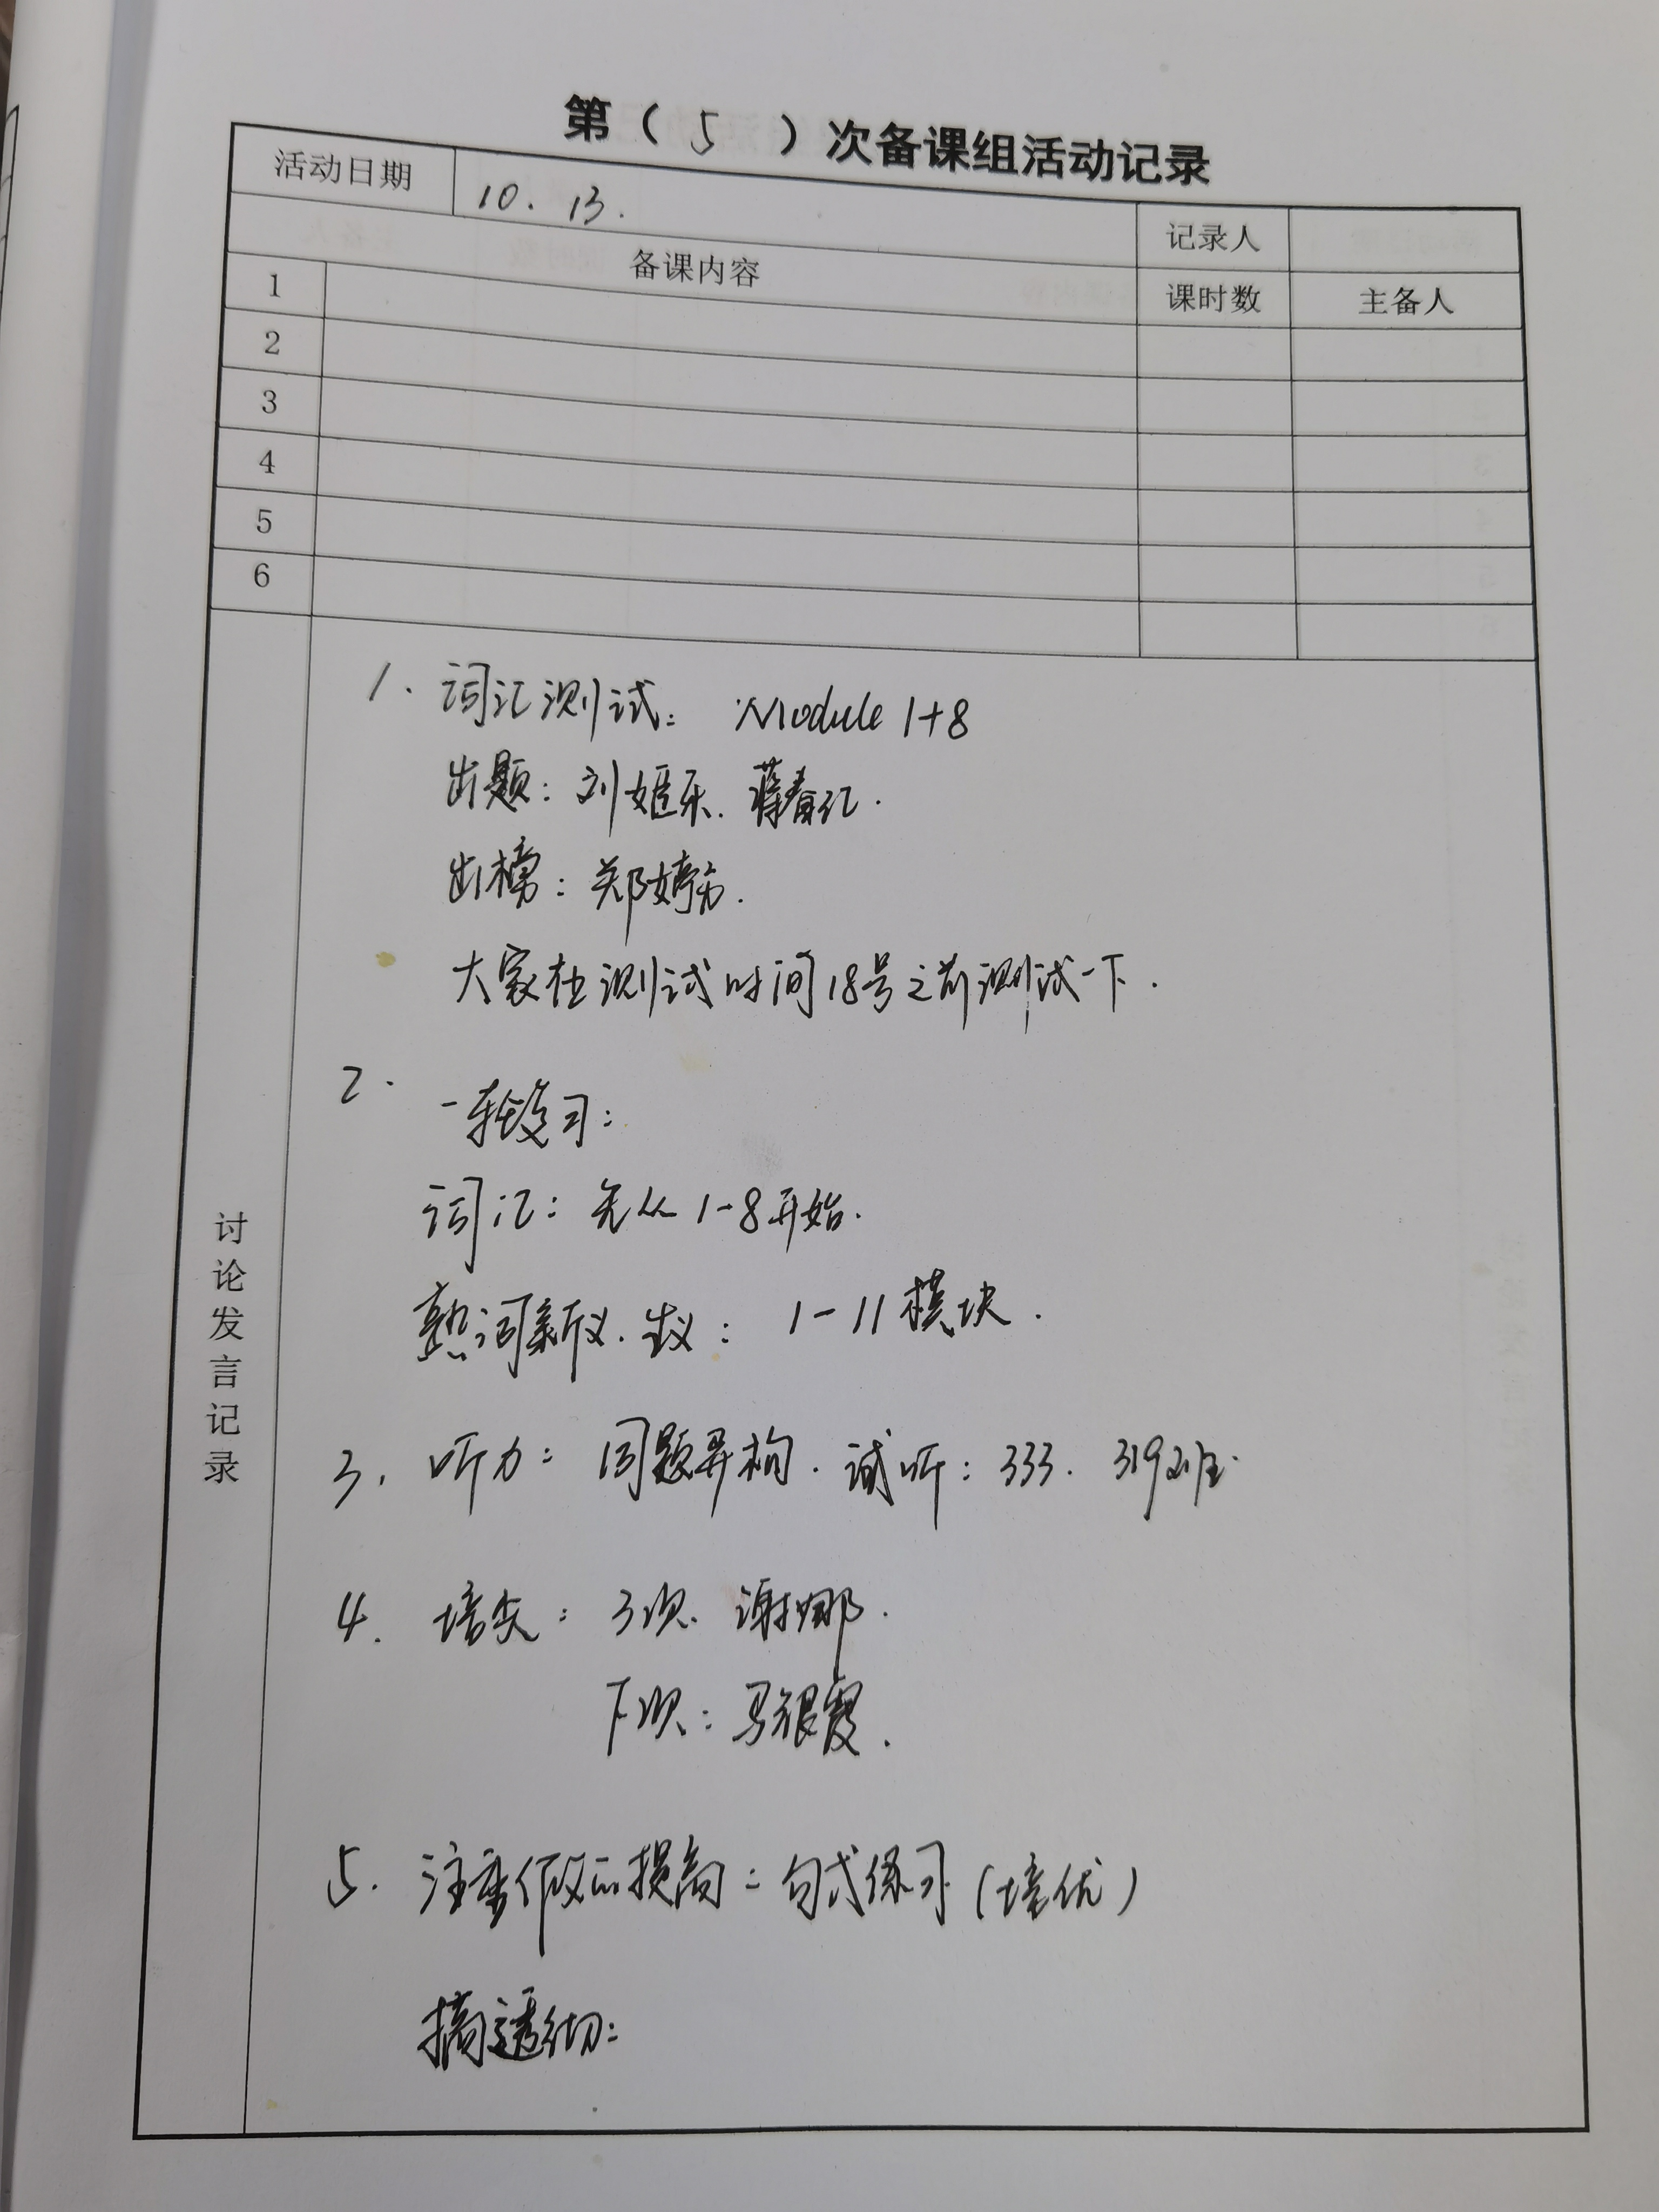 第（5）次备课组活动记录
活动日期 10.13. 记录人
备课内容 课时数 主备人
1
2
3
4
5
6
讨论发言记录
1. 词汇测试： Module 1+8
出题：刘姬乐. 蒋春红.
出榜：郑婷.
大家在测试时间18号之前测试一下.
2. 一轮复习：
词汇：先从1-8开始.
熟词新义. 生义： 1-11模块.
3. 听力：同题异构. 试听：333. 319班.
4. 培尖：3次. 谢娜.
下次：马银霞.
5. 注重作文的提高：句式练习（培优）
搞透彻：